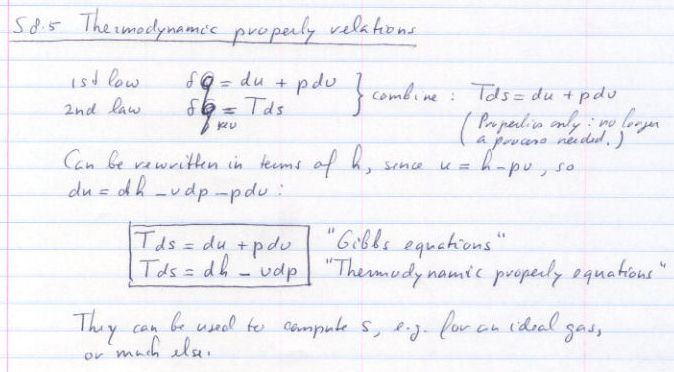 S8.5 Thermodynamic property relations
1st law δq = du + pdv } combine : Tds = du + pdv
2nd law δq = Tds
rev
( Properties only : no longer
a process needed. )
Can be rewritten in terms of h, since u = h-pv, so
du = dh - vdp - pdv :
Tds = du + pdv "Gibbs equations"
Tds = dh - vdp "Thermodynamic property equations"
They can be used to compute s, e.g. for an ideal gas,
or much else.